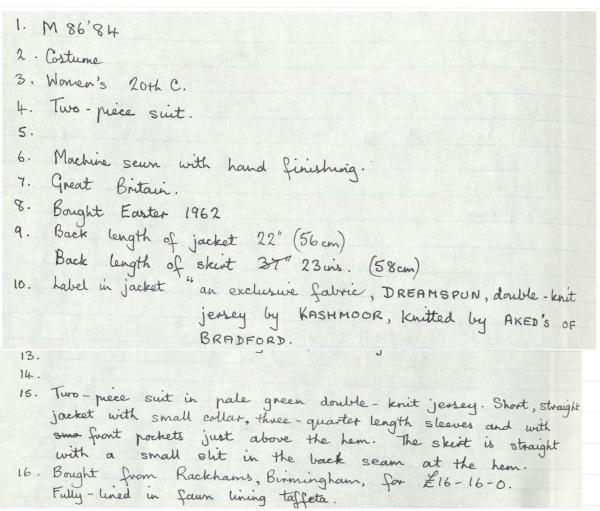 1. M 86'84
2. Costume
3. Women's 20th C.
4. Two-piece suit.
5.
6. Machine sewn with hand finishing.
7. Great Britain.
8. Bought Easter 1962
9. Back length of jacket 22" (56cm)
Back length of skirt 37" 23ins. (58cm)
10. Label in jacket "an exclusive fabric, DREAMSPUN, double-knit
jersey by KASHMOOR, knitted by AKED'S OF
BRADFORD.
13.
14.
15. Two-piece suit in pale green double-knit jersey. Short, straight
jacket with small collar, three-quarter length sleeves and with
front pockets just above the hem. The skirt is straight
with a small slit in the back seam at the hem.
16. Bought from Rackhams, Birmingham, for £16-16-0.
Fully-lined in fawn lining taffeta.